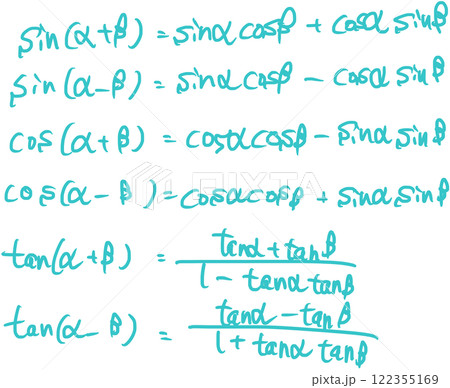 sin(α+β) = sinα cosβ + cosα sinβ
sin(α-β) = sinα cosβ - cosα sinβ
cos(α+β) = cosα cosβ - sinα sinβ
cos(α-β) = cosα cosβ + sinα sinβ
tan(α+β) = (tanα + tanβ)/(1 - tanα tanβ)
tan(α-β) = (tanα - tanβ)/(1 + tanα tanβ)
PIXTA
122355169